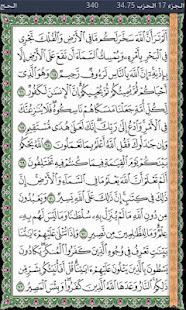 الجزء 17 الحزب 34.75 340 الحج
أَلَمْ تَرَ أَنَّ ٱللَّهَ سَخَّرَ لَكُم مَّا فِى ٱلْأَرْضِ وَٱلْفُلْكَ تَجْرِى
فِى ٱلْبَحْرِ بِأَمْرِهِۦ وَيُمْسِكُ ٱلسَّمَآءَ أَن تَقَعَ عَلَى ٱلْأَرْضِ إِلَّا
بِإِذْنِهِۦٓ إِنَّ ٱللَّهَ بِٱلنَّاسِ لَرَءُوفٌ رَّحِيمٌ ٦٥ وَهُوَ ٱلَّذِىٓ
أَحْيَاكُمْ ثُمَّ يُمِيتُكُمْ ثُمَّ يُحْيِيكُمْ إِنَّ ٱلْإِنسَٰنَ لَكَفُورٌ ٦٦
لِّكُلِّ أُمَّةٍ جَعَلْنَا مَنسَكًا هُمْ نَاسِكُوهُ فَلَا يُنَٰزِعُنَّكَ فِى
ٱلْأَمْرِ وَٱدْعُ إِلَىٰ رَبِّكَ إِنَّكَ لَعَلَىٰ هُدًى مُّسْتَقِيمٍ ٦٧ وَإِن
جَٰدَلُوكَ فَقُلِ ٱللَّهُ أَعْلَمُ بِمَا تَعْمَلُونَ ٦٨ ٱللَّهُ يَحْكُمُ
بَيْنَكُمْ يَوْمَ ٱلْقِيَٰمَةِ فِيمَا كُنتُمْ فِيهِ تَخْتَلِفُونَ ٦٩
أَلَمْ تَعْلَمْ أَنَّ ٱللَّهَ يَعْلَمُ مَا فِى ٱلسَّمَآءِ وَٱلْأَرْضِ إِنَّ
ذَٰلِكَ فِى كِتَٰبٍ إِنَّ ذَٰلِكَ عَلَى ٱللَّهِ يَسِيرٌ ٧٠ وَيَعْبُدُونَ
مِن دُونِ ٱللَّهِ مَا لَمْ يُنَزِّلْ بِهِۦ سُلْطَٰنًا وَمَا لَيْسَ لَهُم
بِهِۦ عِلْمٌ وَمَا لِلظَّٰلِمِينَ مِن نَّصِيرٍ ٧١ وَإِذَا تُتْلَىٰ عَلَيْهِمْ ءَايَٰتُنَا
بَيِّنَٰتٍ تَعْرِفُ فِى وُجُوهِ ٱلَّذِينَ كَفَرُوا۟ ٱلْمُنكَرَ يَكَادُونَ
يَسْطُونَ بِٱلَّذِينَ يَتْلُونَ عَلَيْهِمْ ءَايَٰتِنَا قُلْ أَفَأُنَبِّئُكُم
بِشَرٍّ مِّن ذَٰلِكُمُ ٱلنَّارُ وَعَدَهَا ٱللَّهُ ٱلَّذِينَ كَفَرُوا۟ وَبِئْسَ ٱلْمَصِيرُ ٧٢